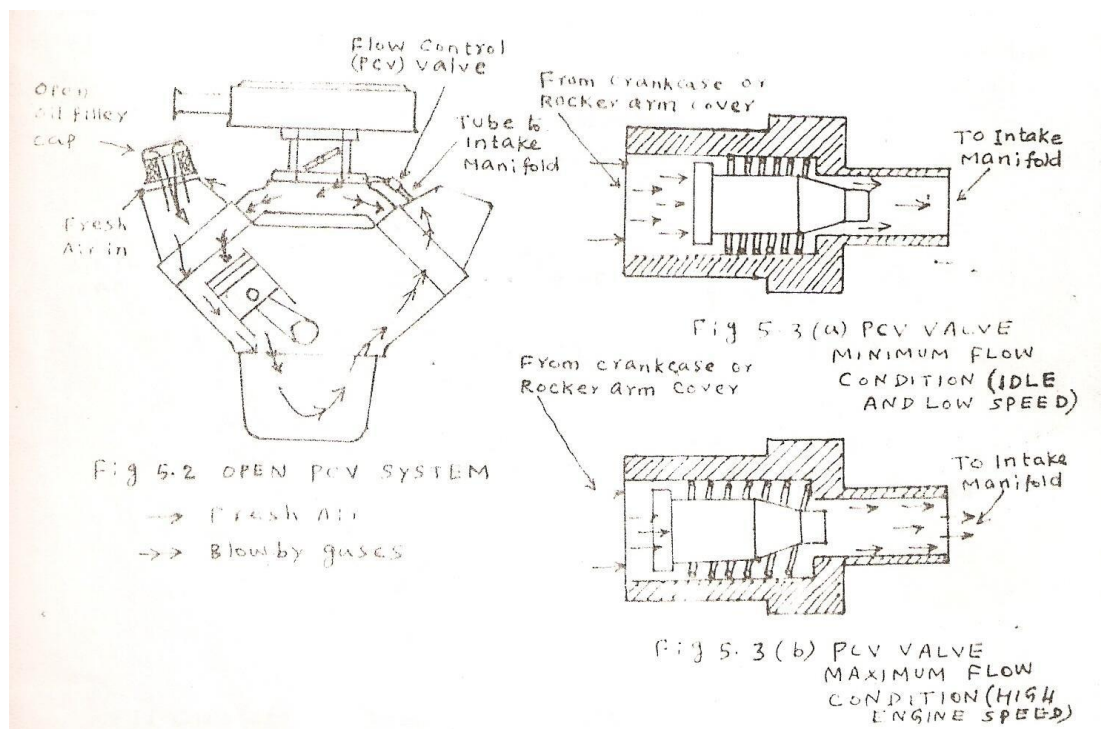 Flow Control
(PCV) valve
Open
oil filley
cap
Tube to
Intake
Manifold
Fresh
Air in
Fig 5.2 OPEN PCV SYSTEM
→ Fresh Air
→> Blowby gases
From crankcase or
Rocker arm cover
To Intake
Manifold
Fig 5.3 (a) PCV VALVE
MINIMUM FLOW
CONDITION (IDLE
AND LOW SPEED)
From crankcase or
Rocker arm Cover
To Intake
Manifold
Fig 5.3 (b) PCV VALVE
MAXIMUM FLOW
CONDITION (HIGH
ENGINE SPEED)